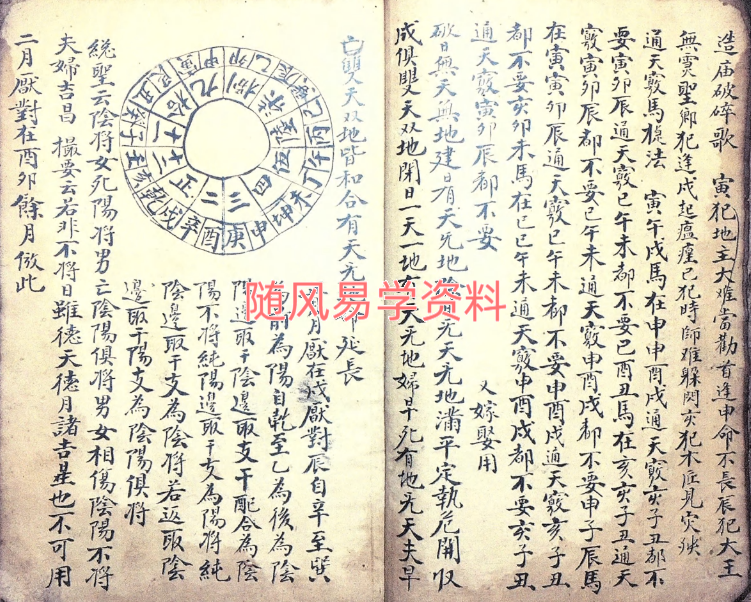 造庙破碎歌　寅犯地王大难當勸首逢申命不長辰犯大王
無灵聖卿犯逢戌起瘟瘽巳犯時師难躲閃亥犯木匠見灾殃
通天竅馬旋法　寅午戌馬在申申酉戌通天竅亥子丑都不
要寅卯辰通天竅巳午未都不要巳酉丑馬在亥亥子丑通天
竅寅卯辰都不要巳午未通天竅申酉戌都不要申子辰馬
在寅寅卯辰通天竅巳午未都不要申酉戌通天竅亥子丑
都不要亥卯未馬在巳巳午未通天竅申酉戌都不要亥子丑
通天竅寅卯辰都不要
又嫁娶用
破日無天無地建日有天无地 有地无天 滿平定執危開収
成俱雙天双地閉日一天一地有天无地婦早死有地无天夫早
亡雙天双地皆和合有天无地 延長
正 二 三 四 九 十 十一 十二
月厭在戌厭對辰自辛至巽
前為陽自乾至乙為後為陰
陽邊取干陰邊取支干配合為陰
陽不將純陽邊取干支為陽將純
陰邊取干支為陰將若返取陰
邊取干陽支為陰陽俱將
総聖云陰將女死陽將男亡陰陽俱將男女相傷陰陽不將
夫婦吉昌　撮要云若非不將日雖德天德月諸吉星也不可用
二月厭對在酉卯餘月倣此
随风易学资料